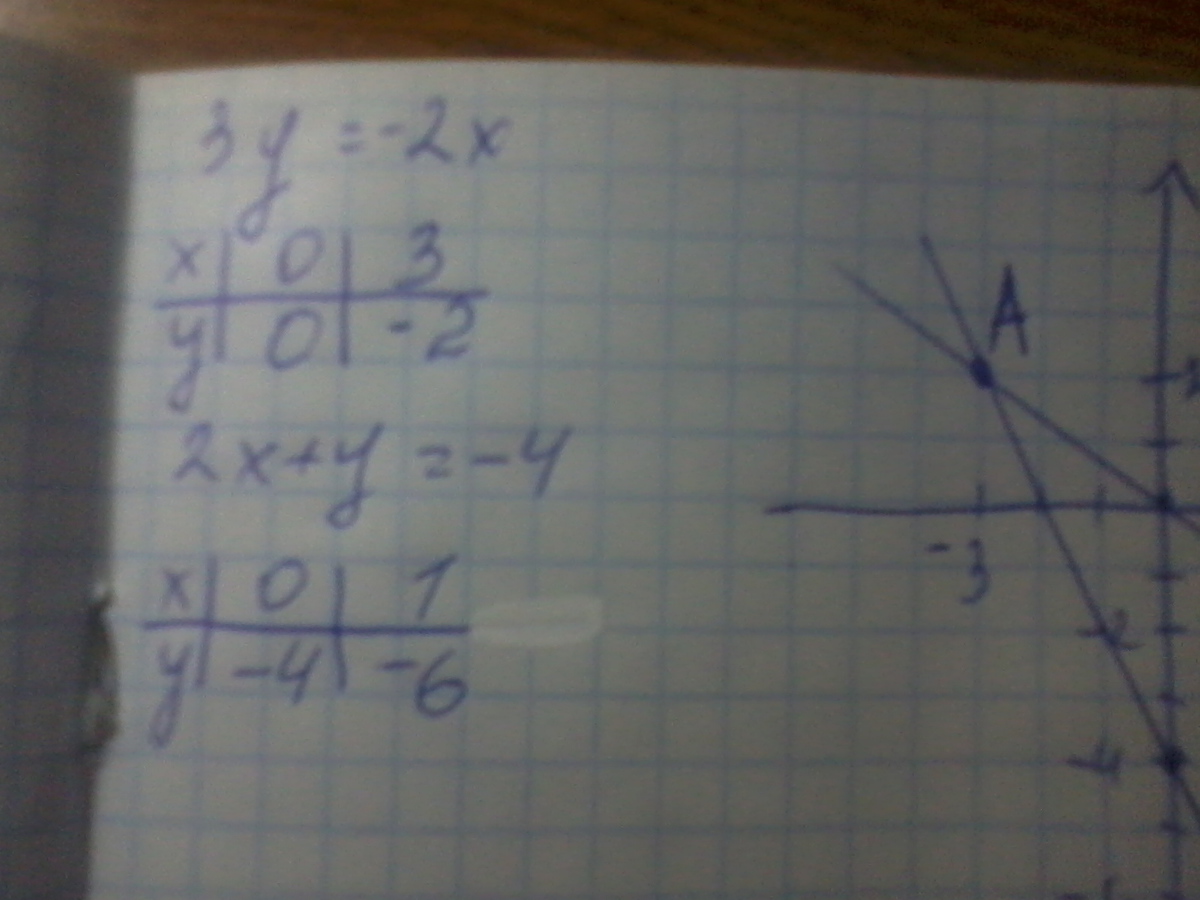 3y = -2x
x | 0 | 3
y | 0 | -2
2x+y = -4
x | 0 | 1
y | -4 | -6
A
-3
-2
-4